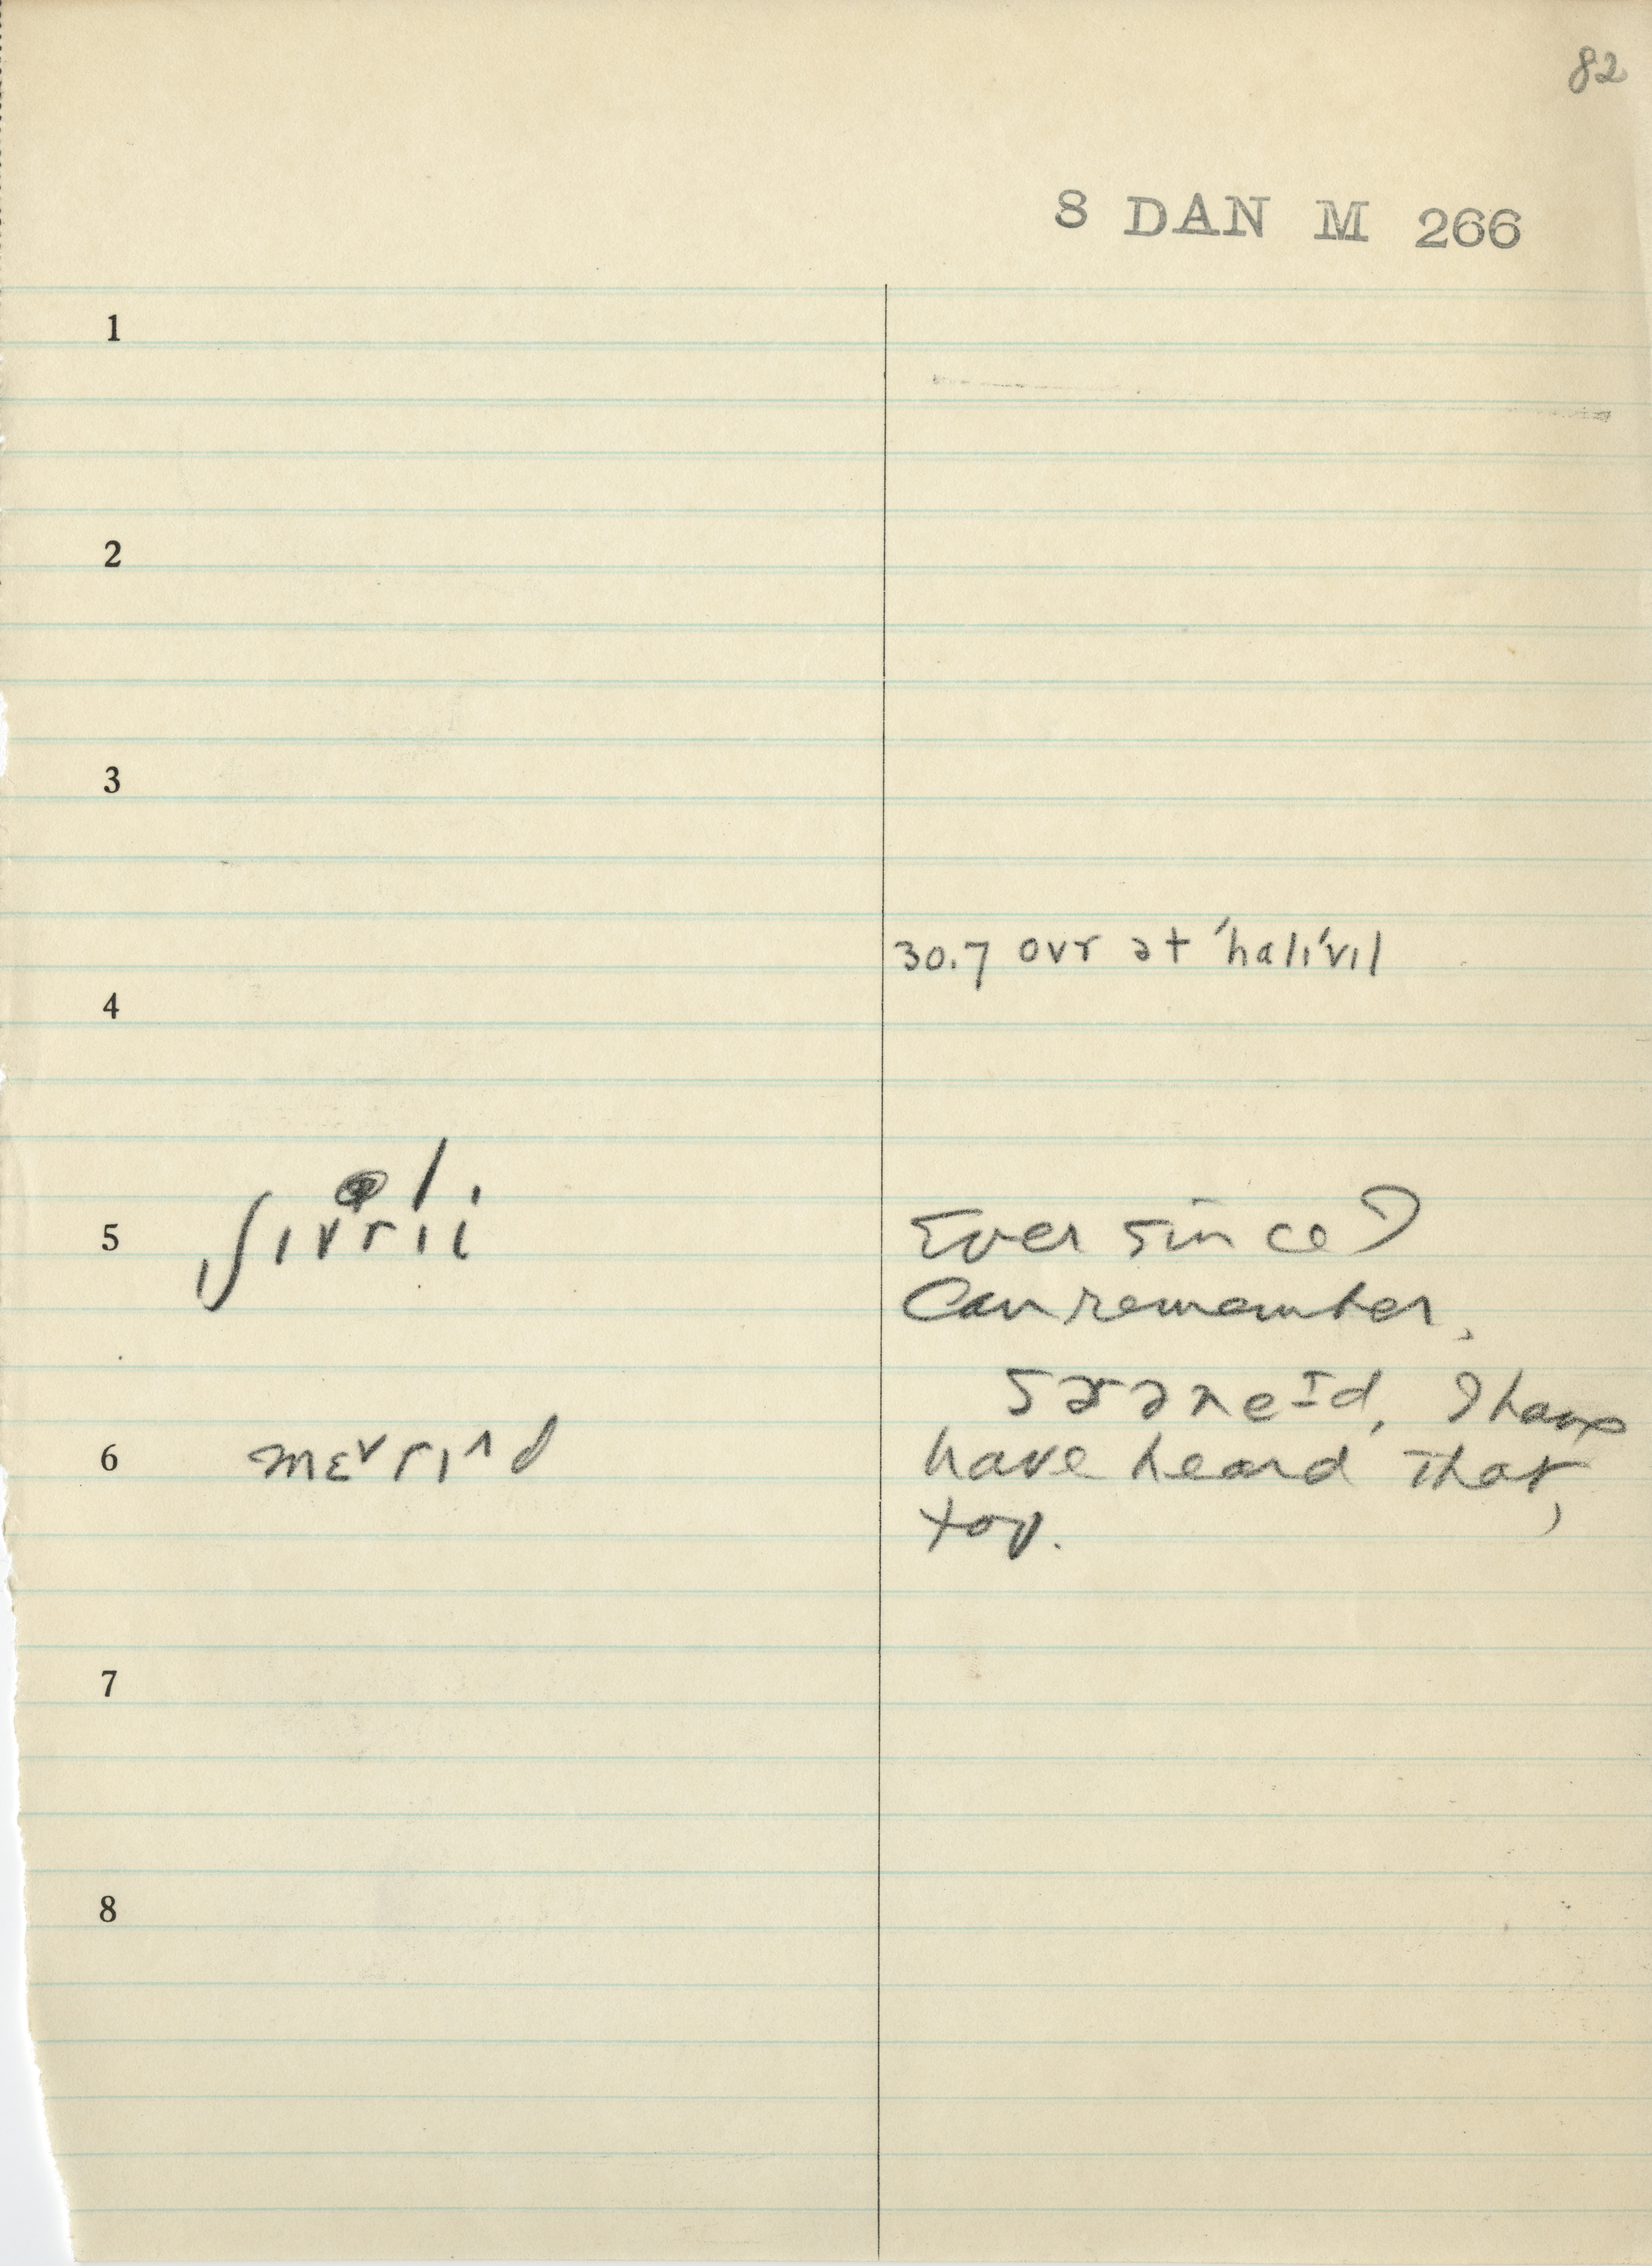 82
8 DAN M 266
1
2
3
30.7 ovr ət 'halɪ'vɪl
4
5 ʃɪvrɪi
Ever since I
can remember.
I have
6 mɛvrɪnd
have heard that,
too.
7
8